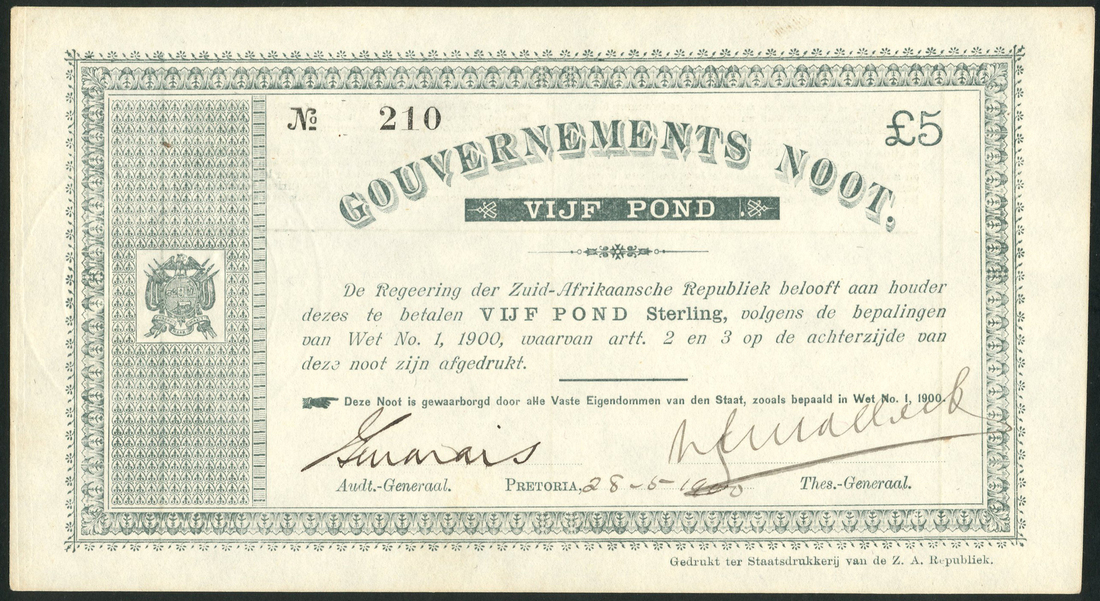 № 210
£5
GOUVERNEMENTS NOOT,
VIJF POND.
De Regeering der Zuid-Afrikaansche Republiek belooft aan houder
dezes te betalen VIJF POND Sterling, volgens de bepalingen
van Wet No. 1, 1900, waarvan artt. 2 en 3 op de achterzijde van
deze noot zijn afgedrukt.
Deze Noot is gewaarborgd door alle Vaste Eigendommen van den Staat, zooals bepaald in Wet No. 1, 1900.
Audt.-Generaal. PRETORIA, 28-5-1900 Thes.-Generaal.
Gedrukt ter Staatsdrukkerij van de Z. A. Republiek.